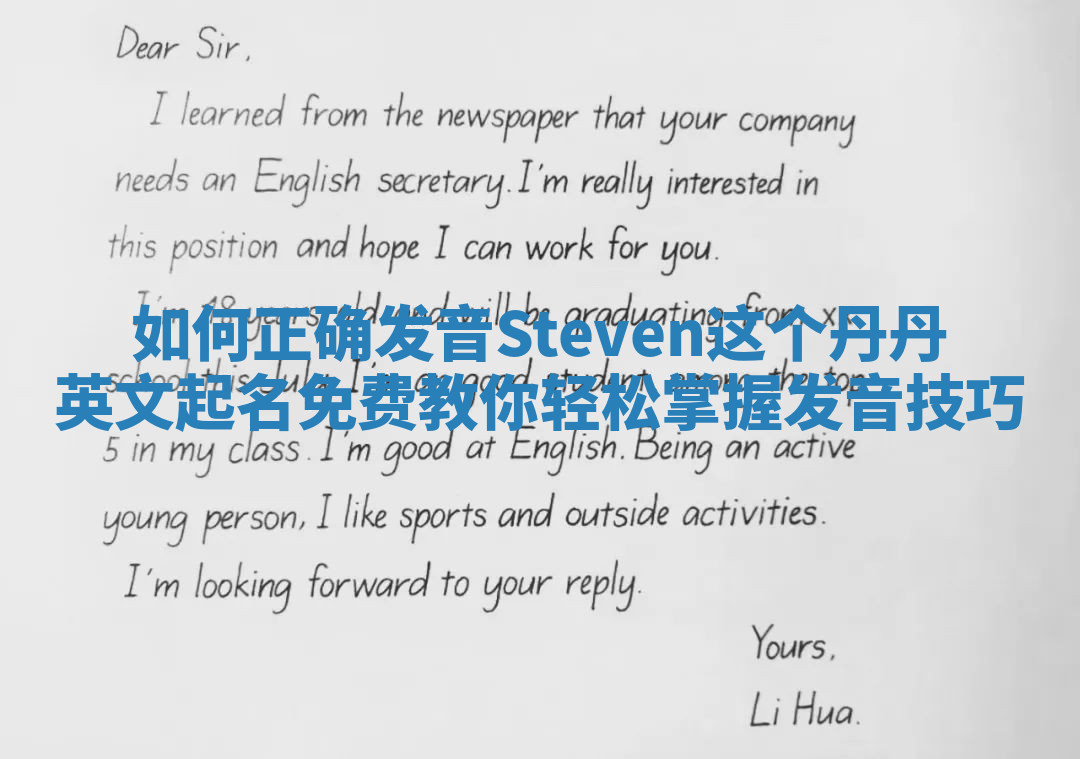 Dear Sir,
I learned from the newspaper that your company
needs an English secretary. I'm really interested in
this position and hope I can work for you.
I'm 18 years old and will be graduating from xx
如何正确发音Steven这个丹丹
school this July. I'm a good student among the top
英文起名免费教你轻松掌握发音技巧
5 in my class. I'm good at English. Being an active
young person, I like sports and outside activities.
I'm looking forward to your reply.
Yours,
Li Hua.